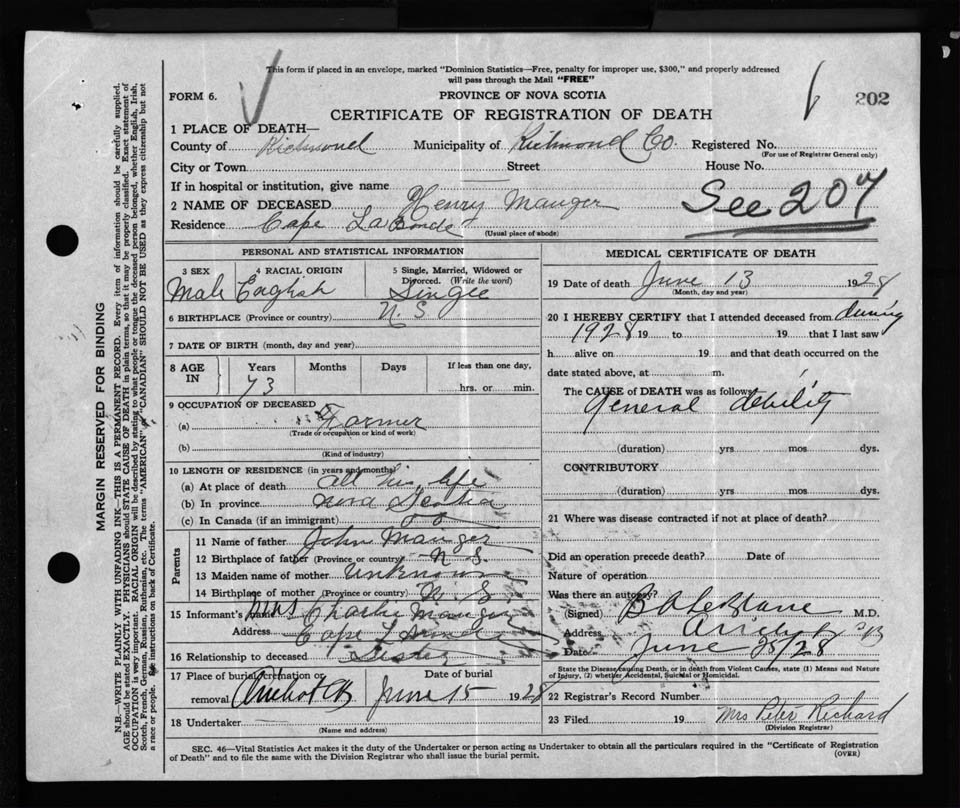 This form if placed in an envelope, marked "Dominion Statistics—Free, penalty for improper use, $300," and properly addressed
will pass through the Mail "FREE"
FORM 6.
PROVINCE OF NOVA SCOTIA
202
CERTIFICATE OF REGISTRATION OF DEATH
1 PLACE OF DEATH—
County of Richmond Municipality of Richmond Co. Registered No.
(For use of Registrar General only)
City or Town Street House No.
If in hospital or institution, give name
2 NAME OF DECEASED Henry Mauger
See 207
Residence Cape La
(Usual place of abode)
PERSONAL AND STATISTICAL INFORMATION
3 SEX 4 RACIAL ORIGIN 5 Single, Married, Widowed or
Divorced. (Write the word)
Male English Single
6 BIRTHPLACE (Province or country) N. S
7 DATE OF BIRTH (month, day and year)
8 AGE IN Years Months Days If less than one day,
73 hrs. or min.
9 OCCUPATION OF DECEASED
(a) Farmer
(Trade or occupation or kind of work)
(b)
(Kind of industry)
10 LENGTH OF RESIDENCE (in years and months)
(a) At place of death all his life
(b) In province Nova Scotia
(c) In Canada (if an immigrant)
Parents
11 Name of father John Mauger
12 Birthplace of father (Province or country) N. S.
13 Maiden name of mother unknown
14 Birthplace of mother (Province or country) N. S.
15 Informant's name Mrs Charlie Mauger
Address Cape
16 Relationship to deceased Sister
17 Place of burial, cremation or Date of burial
removal Arichat CB June 15 1928
18 Undertaker
(Name and address)
MEDICAL CERTIFICATE OF DEATH
19 Date of death June 13 1928
(Month, day and year)
20 I HEREBY CERTIFY that I attended deceased from during
1928 19 to 19 that I last saw
h alive on 19 and that death occurred on the
date stated above, at m.
The CAUSE of DEATH was as follows
General debility
(duration) yrs mos. dys.
CONTRIBUTORY
(duration) yrs mos. dys.
21 Where was disease contracted if not at place of death?
Did an operation precede death? Date of
Nature of operation
Was there an autopsy?
(Signed) B A LeBlanc M.D.
Address Arichat CB
Date June 28
State the Disease causing Death, or in death from Violent Causes, state (1) Means and Nature
of Injury, (2) whether Accidental, Suicidal or Homicidal.
22 Registrar's Record Number
23 Filed 19 Mrs Peter Richard
(Division Registrar)
SEC. 46—Vital Statistics Act makes it the duty of the Undertaker or person acting as Undertaker to obtain all the particulars required in the "Certificate of Registration
of Death" and to file the same with the Division Registrar who shall issue the burial permit. (OVER)
MARGIN RESERVED FOR BINDING
N.B.—WRITE PLAINLY WITH UNFADING INK—THIS IS A PERMANENT RECORD. Every item of information should be carefully supplied.
AGE should be stated EXACTLY. PHYSICIANS should STATE CAUSE OF DEATH in plain terms, so that it may be properly classified. Exact statement of
OCCUPATION is very important. RACIAL ORIGIN will be described by stating to what people or tongue the deceased person belonged, whether English, Irish,
Scotch, French, German, Russian, Ruthenian, etc. The terms "AMERICAN" or "CANADIAN" SHOULD NOT BE USED as they express citizenship but not
a race or people. See instructions on back of Certificate.